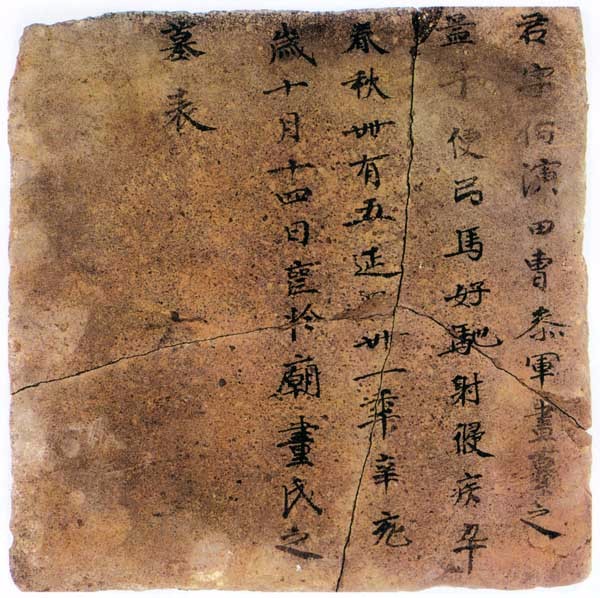 君字伯演田曹叅軍畫纂之
孟子便弓馬好馳射疾卒
春秋卅有五延昌卅一年辛亥
歲十月十四日喪扵廟畫氏之
墓表